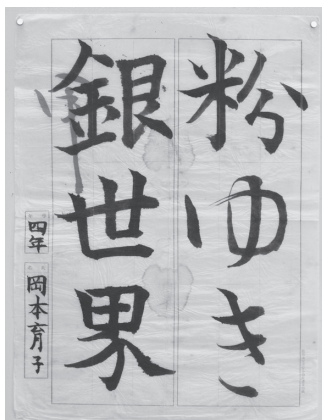 粉ゆき
銀世界
四年 岡本育子